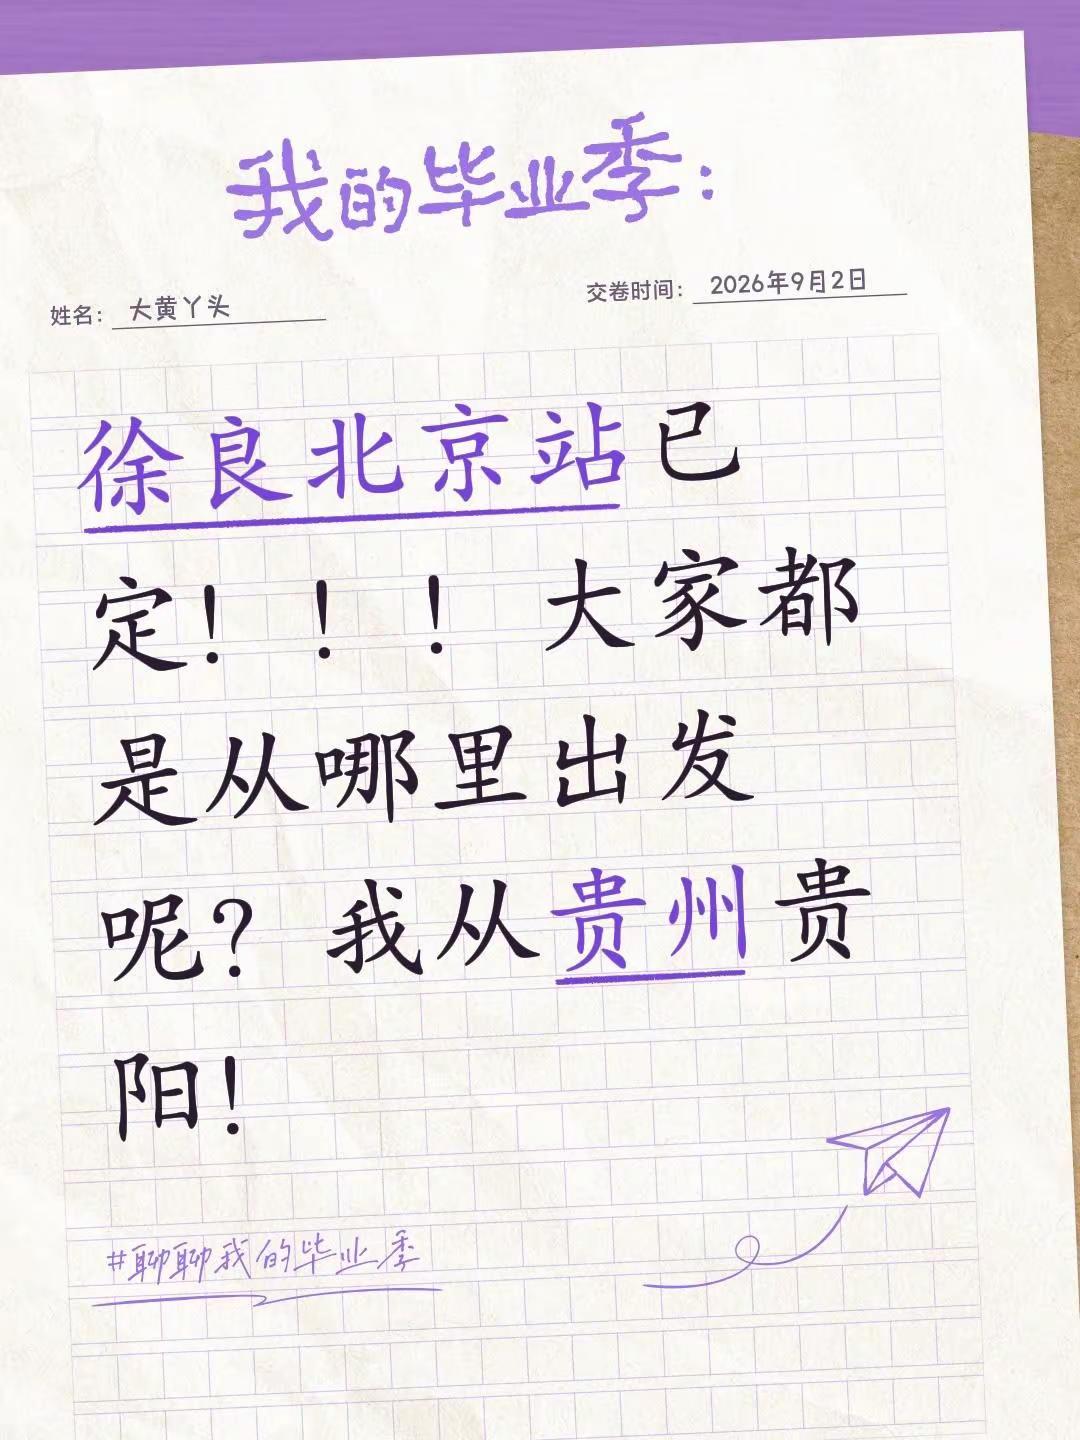 我的毕业季：
姓名：大黄丫头
交卷时间：2026年9月2日
徐良北京站已
定！！！大家都
是从哪里出发
呢？我从贵州贵
阳！
#聊聊我的毕业季